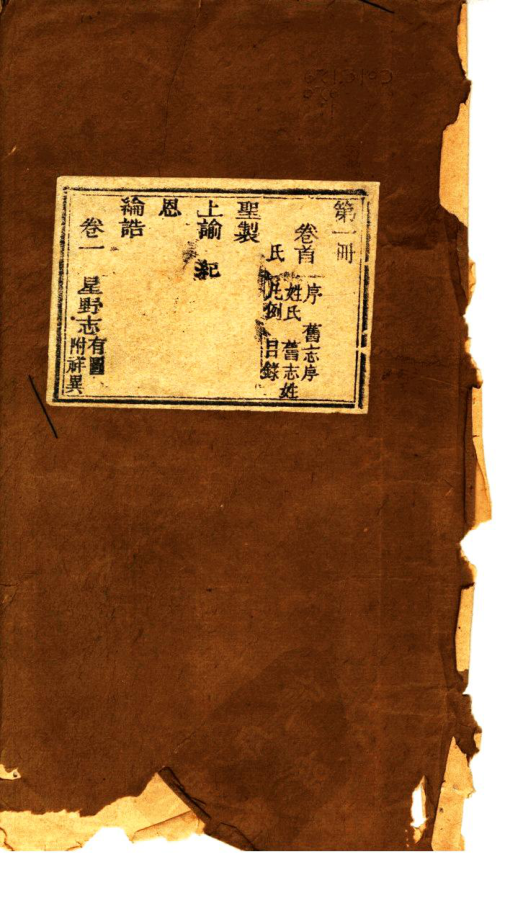 第一冊
卷首 序 舊志序
姓氏 舊志姓
氏 凡例 目錄
聖製
上諭 紀
恩
綸誥
卷一 星野志 有圖
附祥異